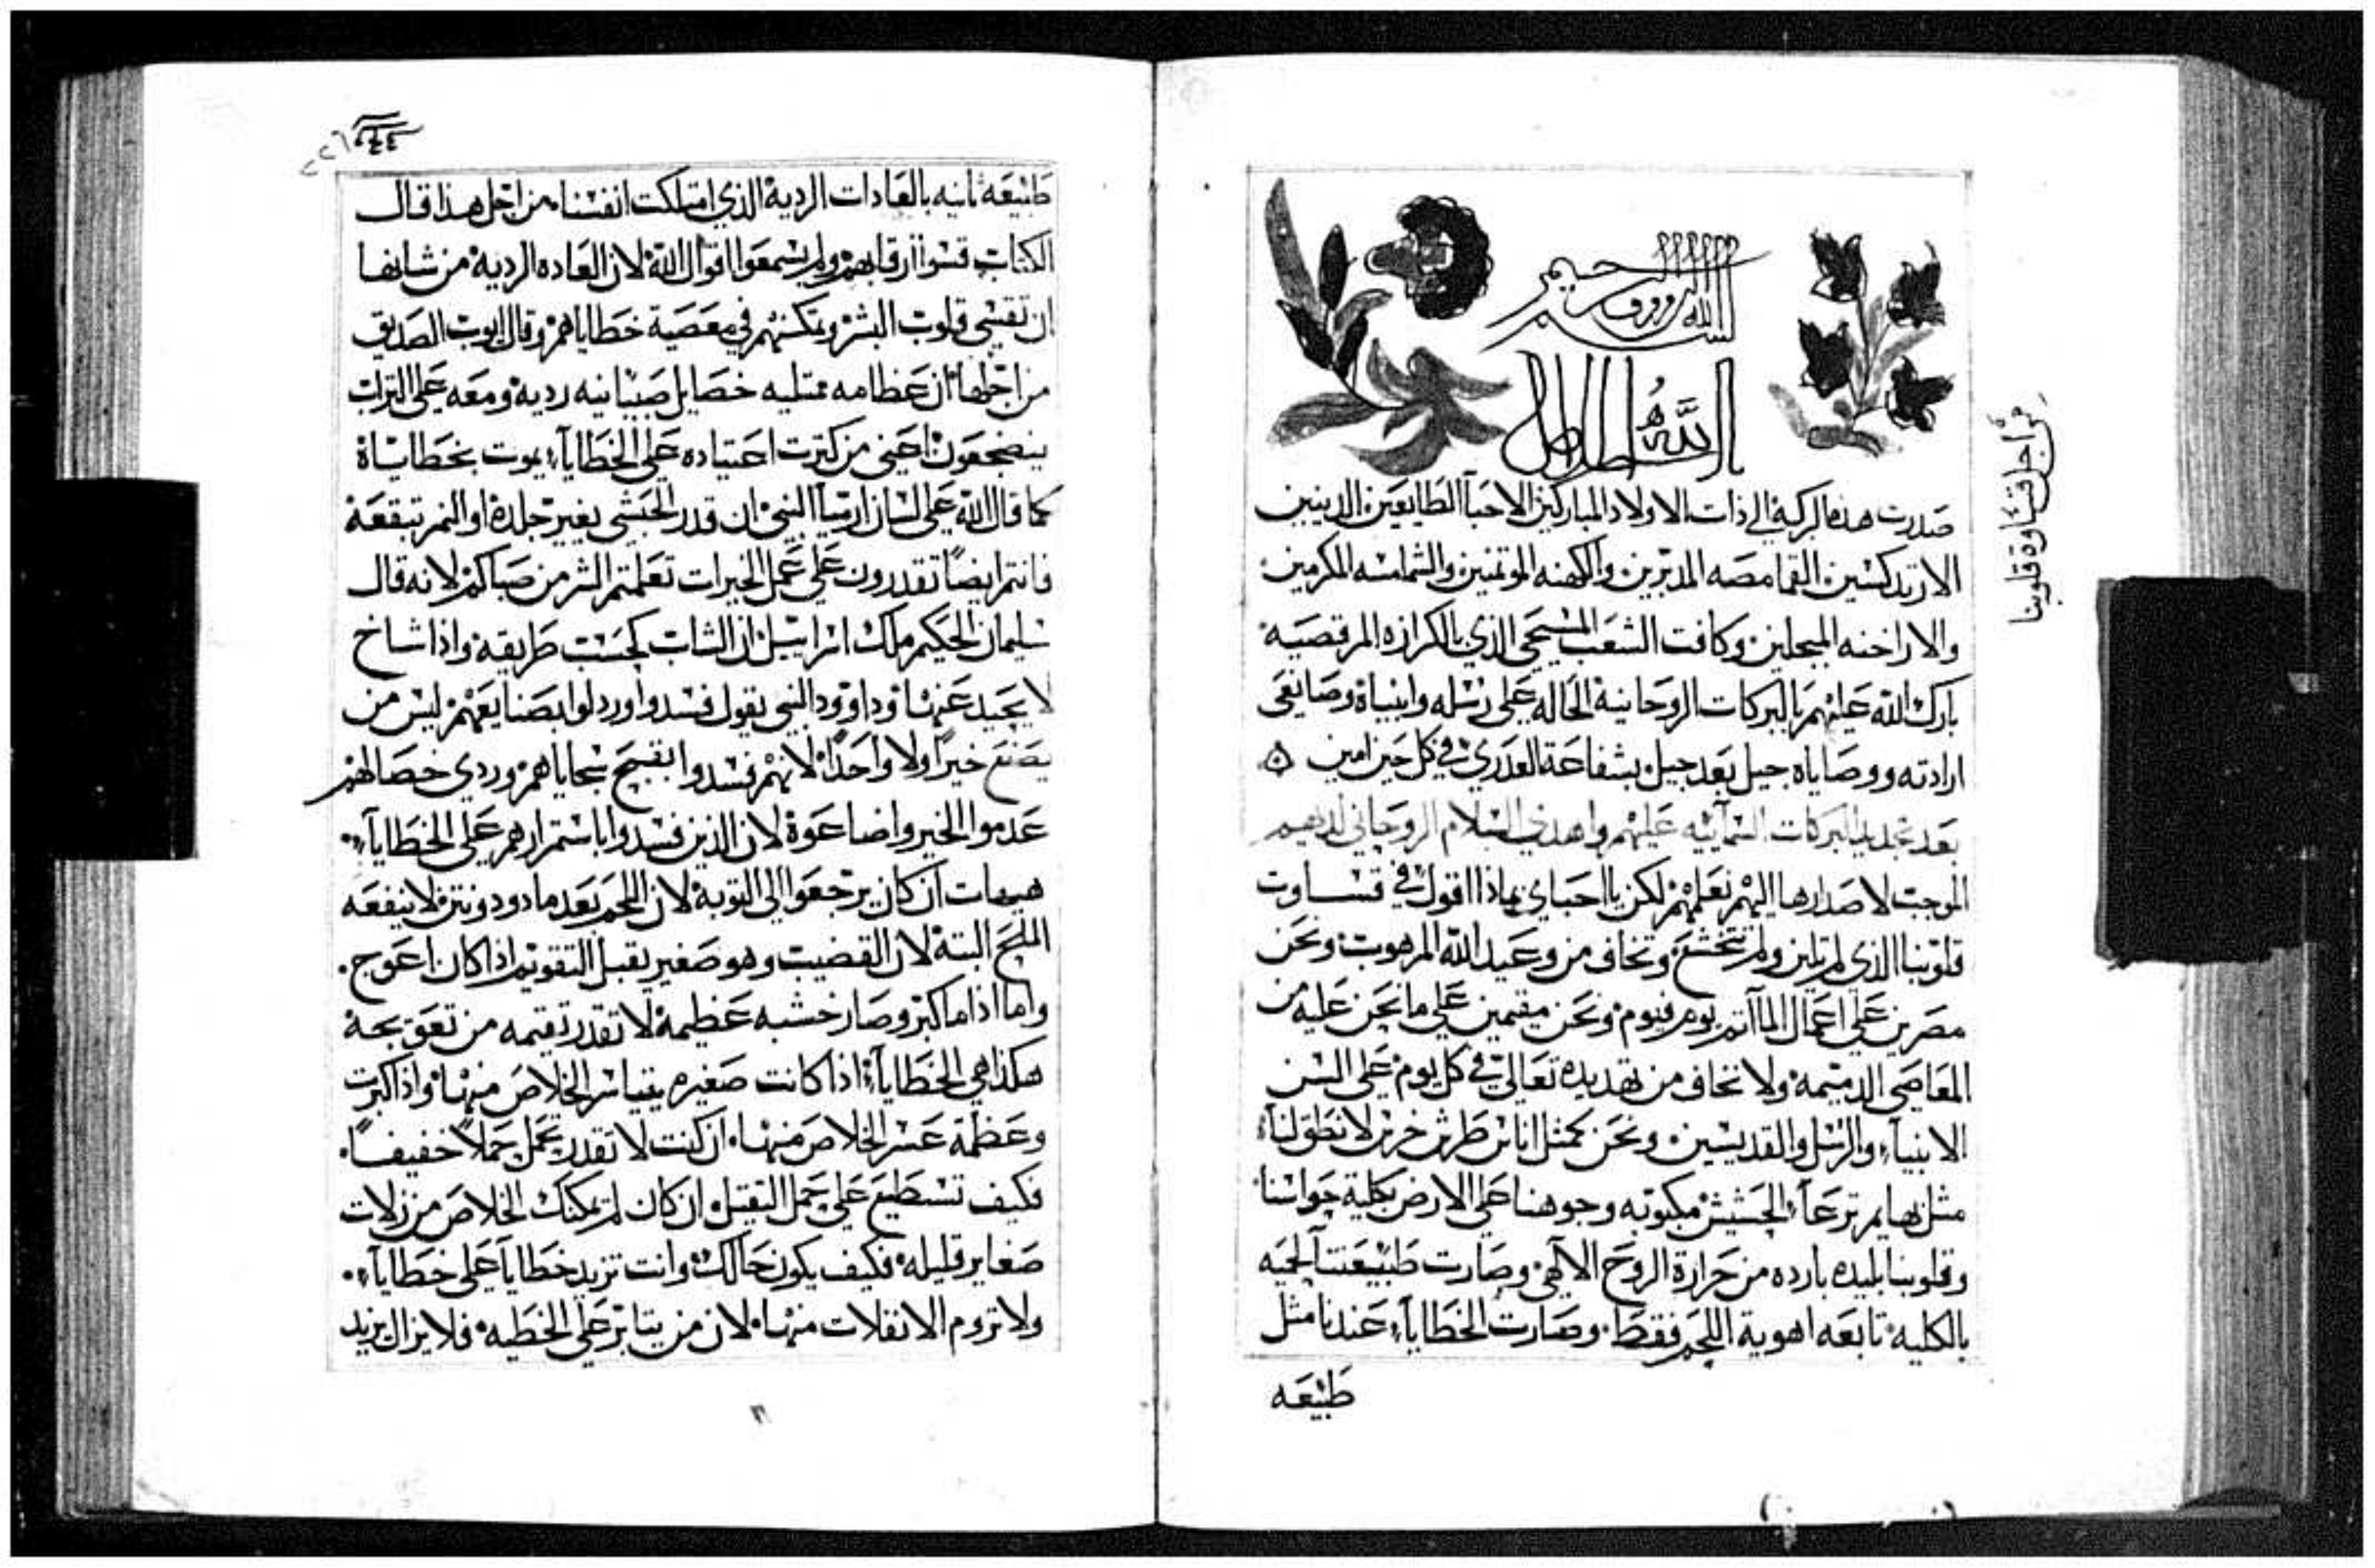 بسم الله الرووف الرحيم
صدرت هذه البركه الي ذات الاولاد المباركين الاحبآ الطايعين الدينين
الارتدكسين القمامصه المدبرين والكهنه الموتمنين والشمامسه المكرمين
والاراخنه المبجلين وكافت الشعب المسيحي الذي بالكرازه المرقصيه
بارك الله عليهم بالبركات الروحانية الحاله علي رسله وانبياة وصانعي
ارادته ووصاياه جيل بعد جيل بشفاعة العدري في كل حين امين
بعد تجديد البركات السمآييه عليهم واهدي السلام الروحاني لديهم
الموجب لاصدارها اليهم نعلمهم لكن يااحباي بماذا اقول في قساوت
قلوبنا الذي لم تلين ولم تتخشع وتخاف من وعيد الله المرهوب ونحن
مصرين علي اعمال المآتم يوم فيوم ونحن مقيمين علي مانحن عليه من
المعاصي الدميمة ولا نخاف من تهديده تعالي في كل يوم علي السن
الانبيآء والرسل والقديسين ونحن كمثل اناس طرش خرس لا نطق لنا
مثل بهايم ترعآ الحشيش مكبوبه وجوهنا علي الارض بكلية حواسنا
وقلوبنا بليده بارده من حرارة الروح الالاهي وصارت طبيعتنا لحميه
بالكليه تابعه اهوية اللحم فقط وصارت الخطايآء عندنا مثل
طبيعه
من اجل قساوة قلوبنا
طبيعه ثانيه بالعادات الردية الذي امتلكت انفسنا من اجل هذا قال
الكتاب قسوا ارقابهم ولم يسمعوا اقوال الله لان العاده الردية من شانها
ان تقسي قلوب البشر وتمكنهم في معصية خطاياهم وقال ايوب الصديق
من اجلها ان عظامه ممتليه خصايل صبيانيه رديه ومعه علي التراب
ينضجعون اعني من كترت اعتياده علي الخطايآء يموت بخطاياة
كما قال الله علي لسان ارميآ النبي ان قدر الحبشي يغير جلدة او النمر تبقعة
فانتم ايضاً تقدرون علي عمل الخيرات تعلمتم الشر من صباكم لانه قال
سليمان الحكيم ملك اسراييل ان الشاب كحسب طريقه واذا شاخ
لا يحيد عنها وداوود النبي يقول فسدوا وردلوا بصنايعهم ليس من
يصنع خيراً ولا واحداً لانهم فسدوا بقبيح سجاياهم وردي خصالهم
عدموا الخير واضاعوة لان الذين فسدوا باستمرارهم علي الخطايآء
هيهات ان كان يرجعوا الي التوبة لان اللحم بعد مادود ونتن لا ينفعه
الملح البتة لان القضيب وهو صغير يقبل التقويم اذا كان اعوج
واما اذا ما كبر وصار خشبه عظيمة لا تقدر تقيمه من تعويجه
هكذا هي الخطايآء اذا كانت صغيره يتياسر الخلاص منها واذا كبرت
وعظمة عسر الخلاص منها ان كنت لا تقدر تحمل حملاً خفيفاً
فكيف تستطيع علي حمل التقيل ان كان لم يمكنك الخلاص من زلات
صغاير قليله فكيف يكون حالك وانت تزيد خطايآ علي خطايآء
ولا تروم الانفلات منها لان من يتابر علي الخطيه فلا يزال يزيد